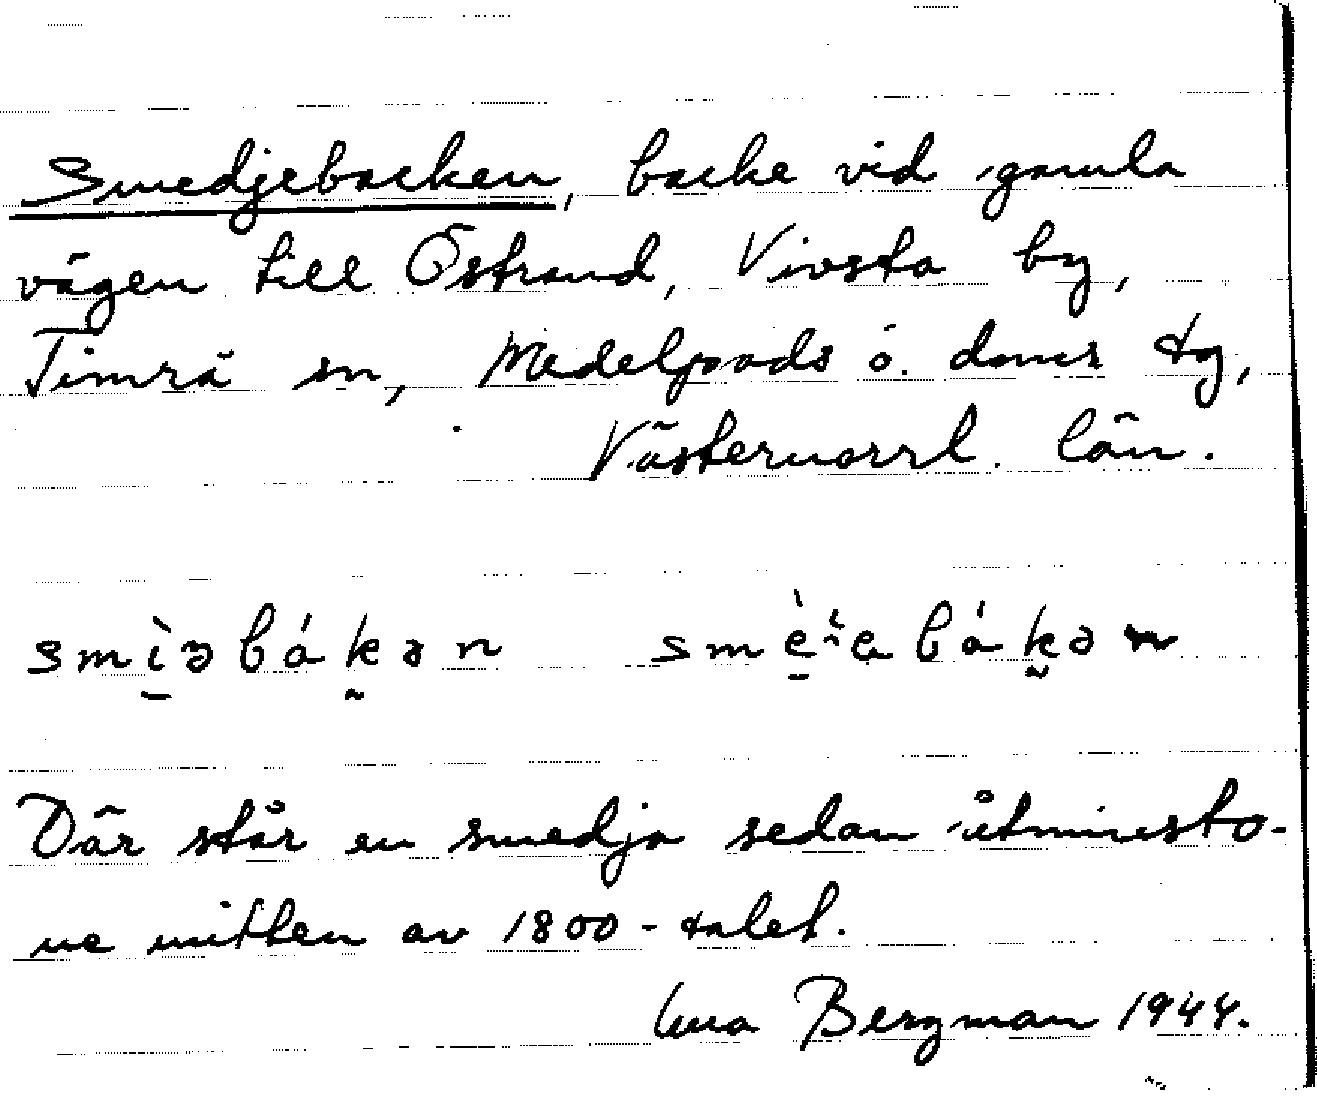 Smedjebacken, backe vid gamla
vägen till Östrand, Vivsta by,
Timrå sn, Medelpads ö. doms tg,
Västernorrl. län.
smì̱əbák̰ən smè̱ɪebák̰ən
Där står en smedja sedan åtminsto-
ne mitten av 1800-talet.
Bergman 1944.